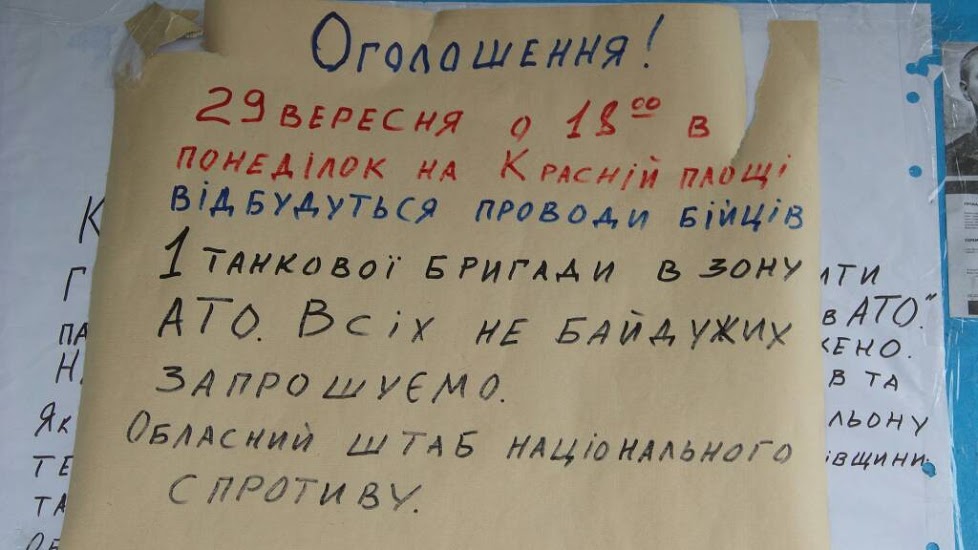 Оголошення!
29 вересня о 18⁰⁰ в
понеділок на Красній площі
відбудуться проводи бійців
1 танкової бригади в зону
АТО. Всіх не байдужих
запрошуємо.
Обласний штаб національного
спротиву.
в АТО."
в та